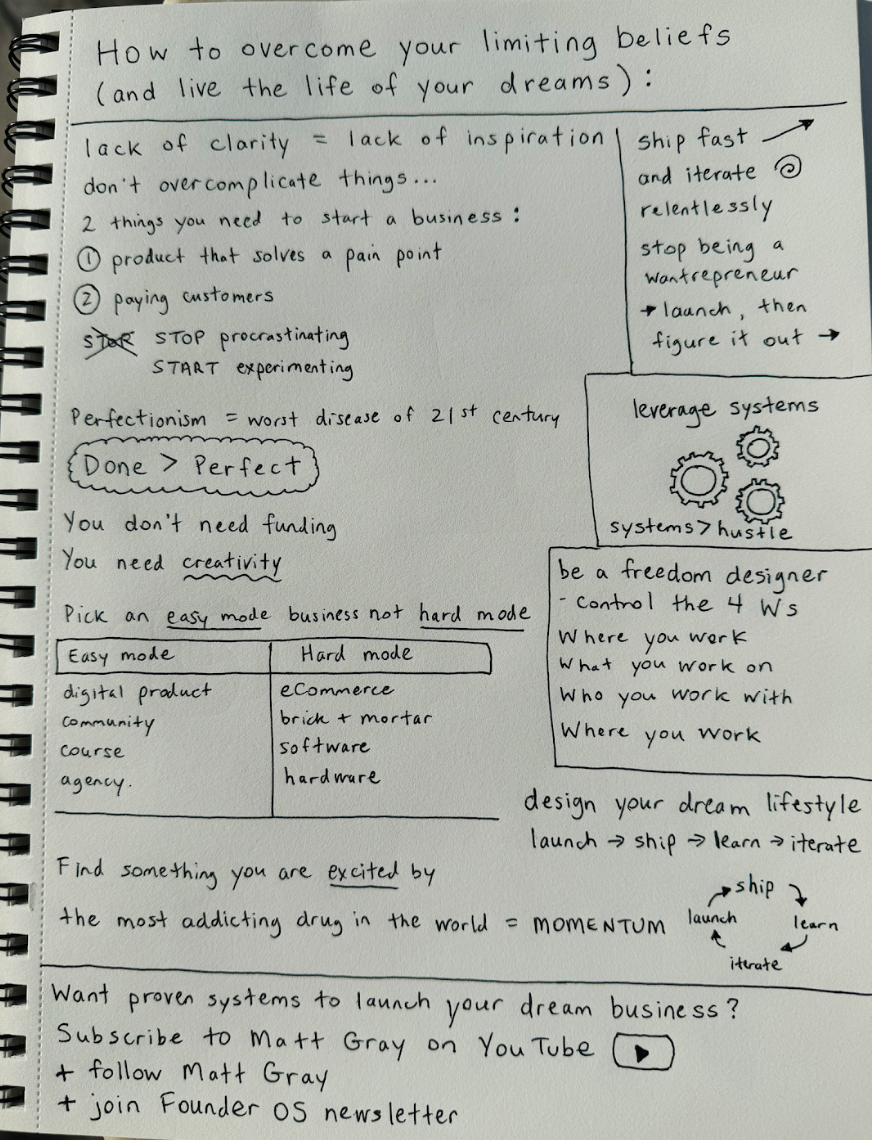 How to overcome your limiting beliefs
(and live the life of your dreams):
lack of clarity = lack of inspiration
don't overcomplicate things...
2 things you need to start a business:
① product that solves a pain point
② paying customers
STOP procrastinating
START experimenting
Perfectionism = worst disease of 21st century
Done > Perfect
You don't need funding
You need creativity
Pick an easy mode business not hard mode
Easy mode Hard mode
digital product eCommerce
community brick + mortar
course software
agency. hardware
Find something you are excited by
the most addicting drug in the world = MOMENTUM
ship fast ↗
and iterate
relentlessly
stop being a
wantrepreneur
→ launch, then
figure it out →
leverage systems
systems > hustle
be a freedom designer
- control the 4 Ws
Where you work
What you work on
Who you work with
Where you work
design your dream lifestyle
launch → ship → learn → iterate
ship
launch
learn
iterate
Want proven systems to launch your dream business?
Subscribe to Matt Gray on YouTube
+ follow Matt Gray
+ join Founder OS newsletter